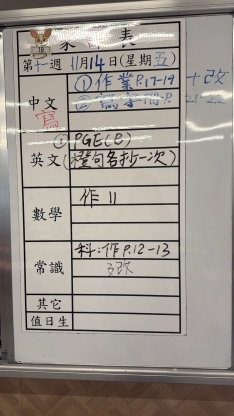 家 課 表
第十一週 11月14日(星期五)
中文
① 作業P.17-19 + 改
②
寫
英文
① PGE(B)
(橙句各抄一次)
數學
作11
常識
科:作P.12-13
改
其它
值日生